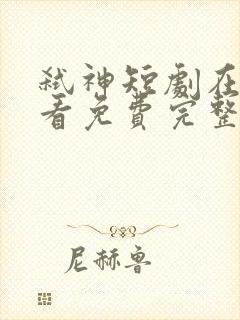 弑神短劇在
看免費完整
尼赫鲁